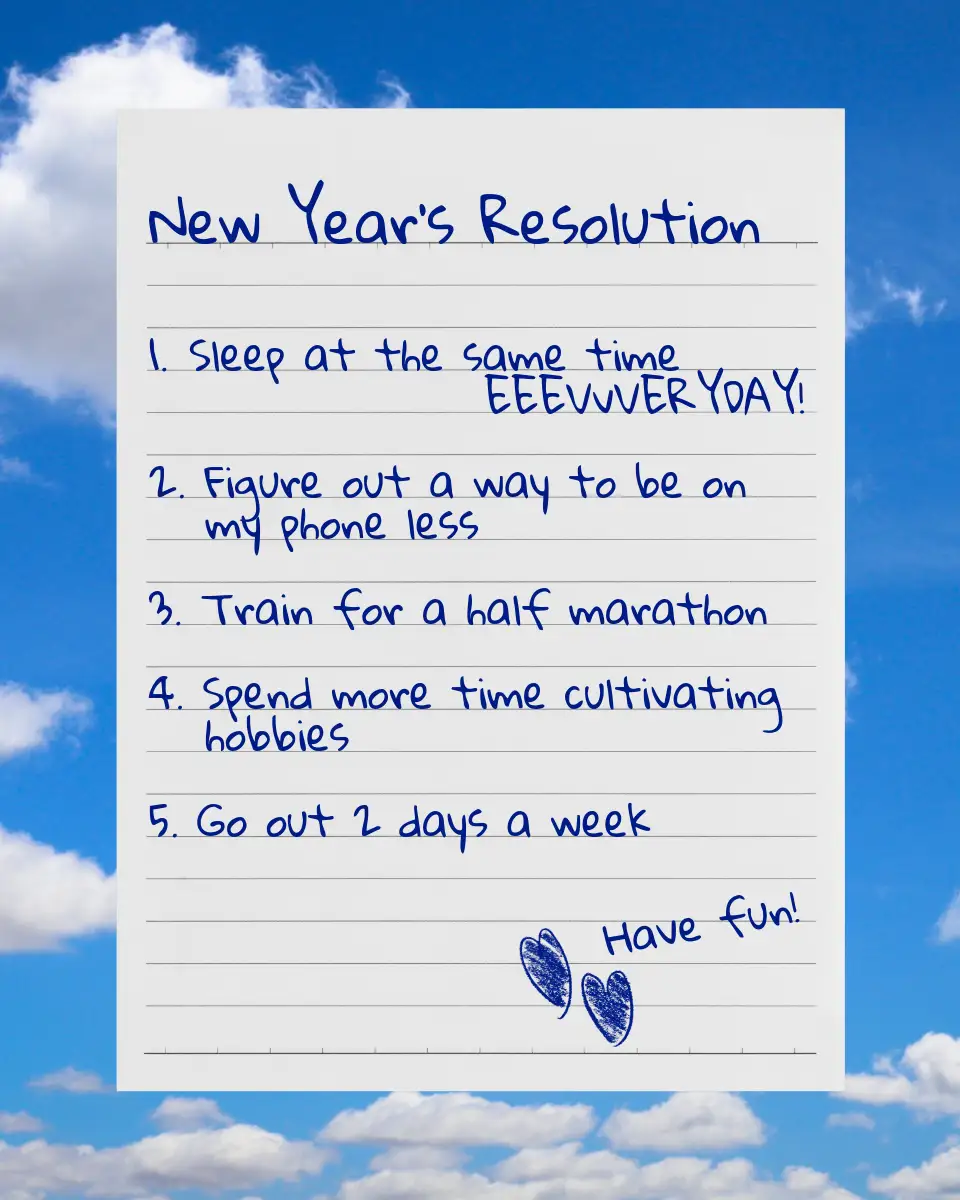 New Year's Resolution
1. Sleep at the same time
EEEVVVERYDAY!
2. Figure out a way to be on
my phone less
3. Train for a half marathon
4. Spend more time cultivating
hobbies
5. Go out 2 days a week
Have fun!